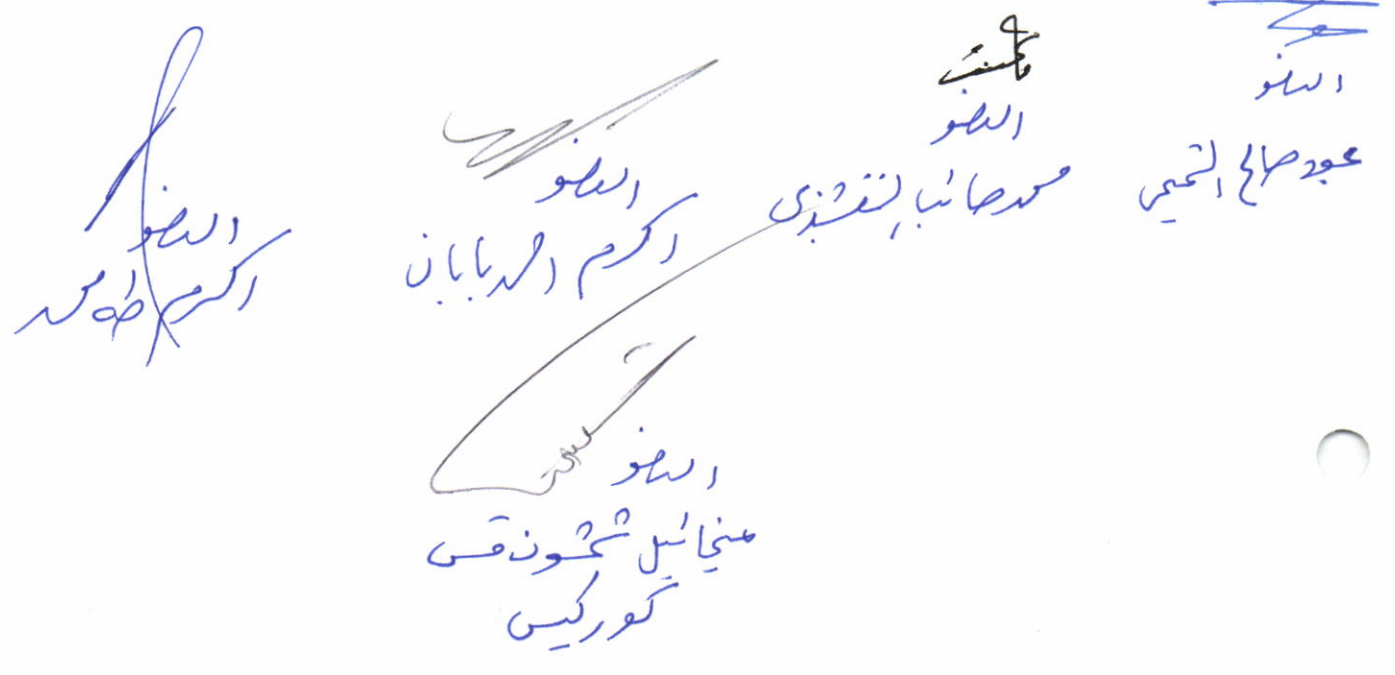 العضو
عبود صالح التميمي
العضو
محمد صائب النقشبندي
العضو
اكرم احمد بابان
العضو
اكرم طه محمد
العضو
ميخائيل شمشون قس
كوركيس